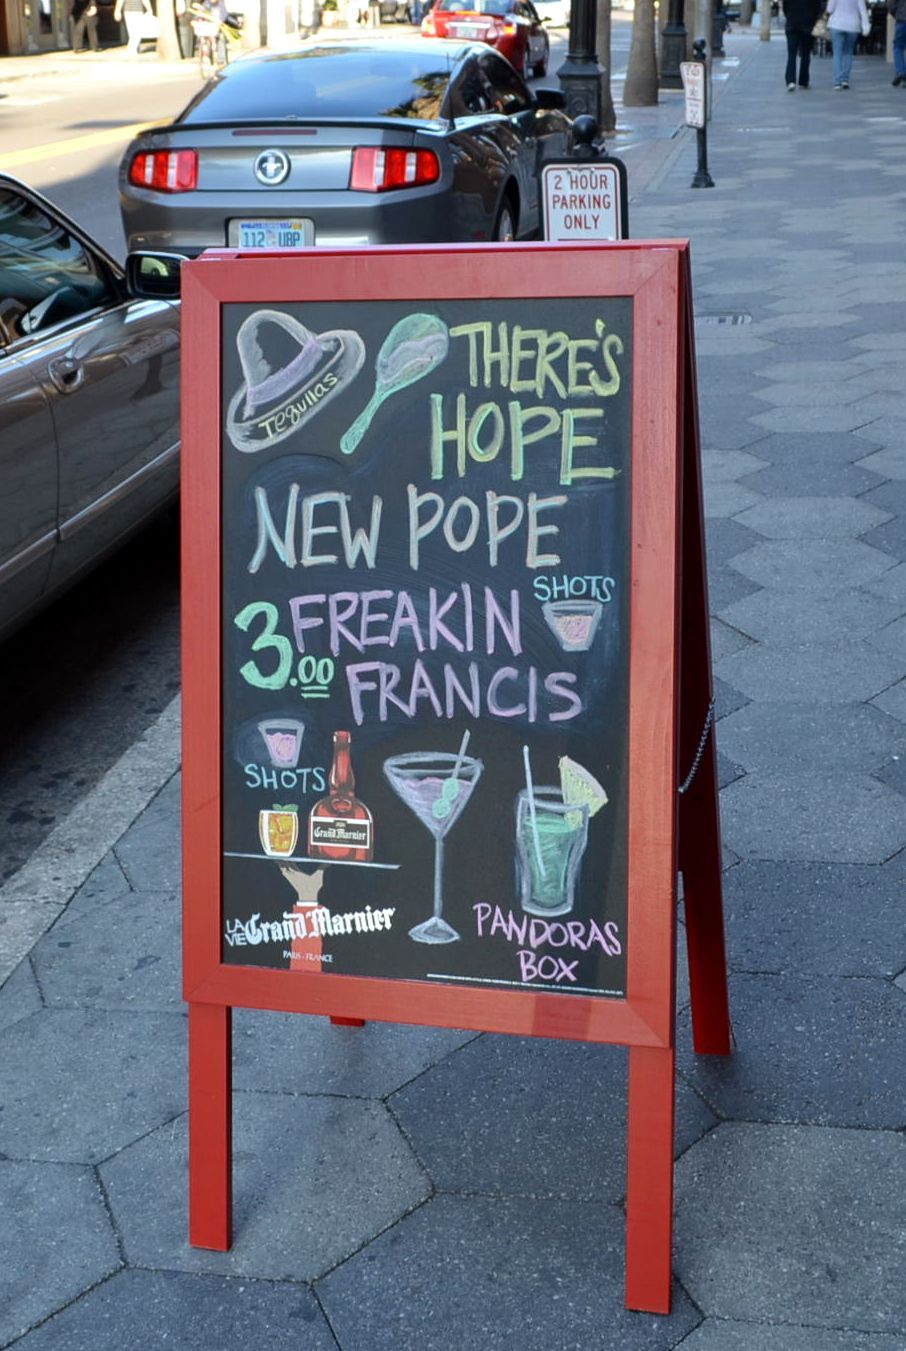 2 HOUR
PARKING
ONLY
112 UBP
Tequilas
THERE'S
HOPE
NEW POPE
SHOTS
3.00 FREAKIN
FRANCIS
SHOTS
Grand Marnier
LA VIE Grand Marnier
PARIS - FRANCE
PANDORAS
BOX